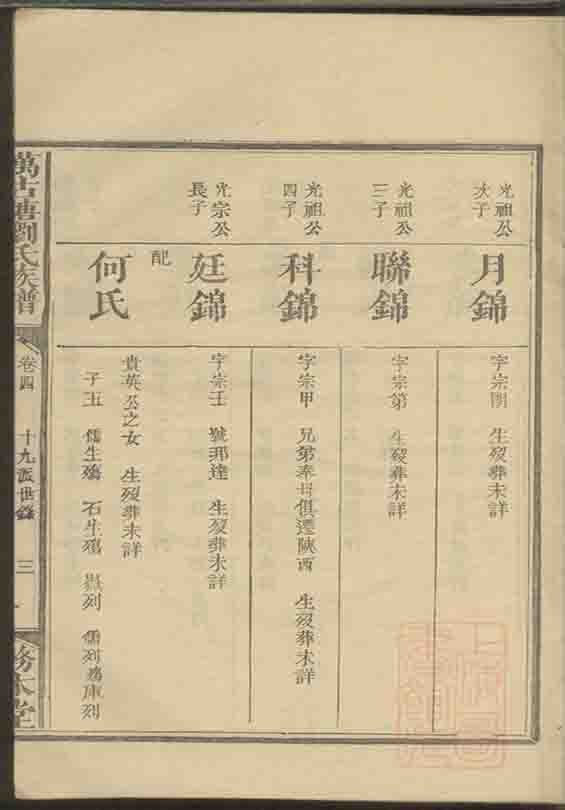 光祖公
次子
月錦
字宗開 生歿葬未詳
光祖公
三子
聯錦
字宗第 生歿葬未詳
光祖公
四子
科錦
字宗甲 兄弟奉母俱遷陝西 生歿葬未詳
光宗公
長子
廷錦
字宗壬 號邦達 生歿葬未詳
配
何氏
貴英公之女 生歿葬未詳
子五 儒生殤 石生殤 列 儒列殤 庫列
萬古塘劉氏族譜
卷四
十九派世錄
三
務本堂